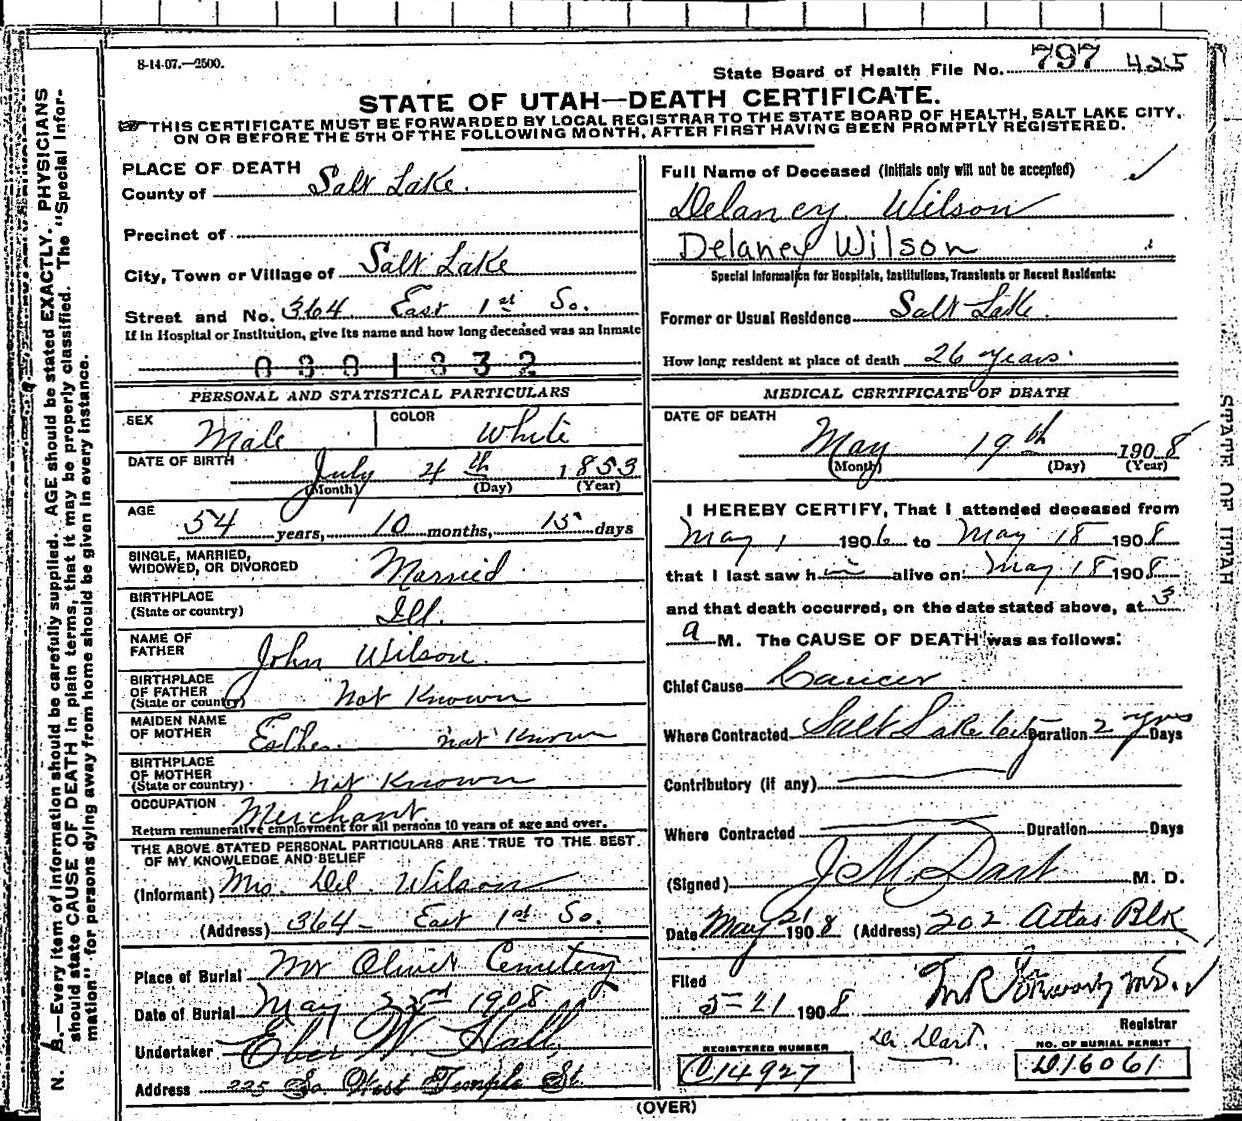 8-14-07.—2500.
State Board of Health File No. 797 425
STATE OF UTAH—DEATH CERTIFICATE.
THIS CERTIFICATE MUST BE FORWARDED BY LOCAL REGISTRAR TO THE STATE BOARD OF HEALTH, SALT LAKE CITY,
ON OR BEFORE THE 5TH OF THE FOLLOWING MONTH, AFTER FIRST HAVING BEEN PROMPTLY REGISTERED.
N. B.—Every item of information should be carefully supplied. AGE should be stated EXACTLY. PHYSICIANS
should state CAUSE OF DEATH in plain terms, that it may be properly classified. The "Special Infor-
mation" for persons dying away from home should be given in every instance.
PLACE OF DEATH
County of Salt Lake.
Precinct of
City, Town or Village of Salt Lake
Street and No. 364 East 1st So.
If in Hospital or Institution, give its name and how long deceased was an Inmate
0801832
PERSONAL AND STATISTICAL PARTICULARS
SEX Male COLOR White
DATE OF BIRTH July 4th 1853
(Month) (Day) (Year)
AGE 54 years, 10 months, 15 days
SINGLE, MARRIED,
WIDOWED, OR DIVORCED Married
BIRTHPLACE
(State or country) Ill.
NAME OF
FATHER John Wilson.
BIRTHPLACE
OF FATHER
(State or country) Not Known
MAIDEN NAME
OF MOTHER Esther not Known
BIRTHPLACE
OF MOTHER
(State or country) Not Known
OCCUPATION Merchant.
Return remunerative employment for all persons 10 years of age and over.
THE ABOVE STATED PERSONAL PARTICULARS ARE TRUE TO THE BEST
OF MY KNOWLEDGE AND BELIEF
(Informant) Mrs. Del. Wilson
(Address) 364 - East 1st So.
Place of Burial Mt Olivet Cemetery
Date of Burial May 22nd 1908
Undertaker Eber W. Hall,
Address 225 So. West Temple St
Full Name of Deceased (Initials only will not be accepted)
Delaney Wilson
Delaney Wilson
Special Information for Hospitals, Institutions, Transients or Recent Residents:
Former or Usual Residence Salt Lake.
How long resident at place of death 26 years.
MEDICAL CERTIFICATE OF DEATH
DATE OF DEATH
May 19th 1908
(Month) (Day) (Year)
I HEREBY CERTIFY, That I attended deceased from
May 1 1906 to May 18 1908
that I last saw him alive on May 18 1908
and that death occurred, on the date stated above, at 3
a M. The CAUSE OF DEATH was as follows:
Chief Cause Cancer
Where Contracted Salt Lake City Duration 2 yrs Days
Contributory (if any)
Where Contracted Duration Days
(Signed) J M Dart M. D.
Date May 21 1908 (Address) 202 Atlas Blk
Filed
5-21 1908 M R MD.
Registrar
REGISTERED NUMBER Dr. Dart. NO. OF BURIAL PERMIT
C14927 D16061
(OVER)
STATE OF UTAH